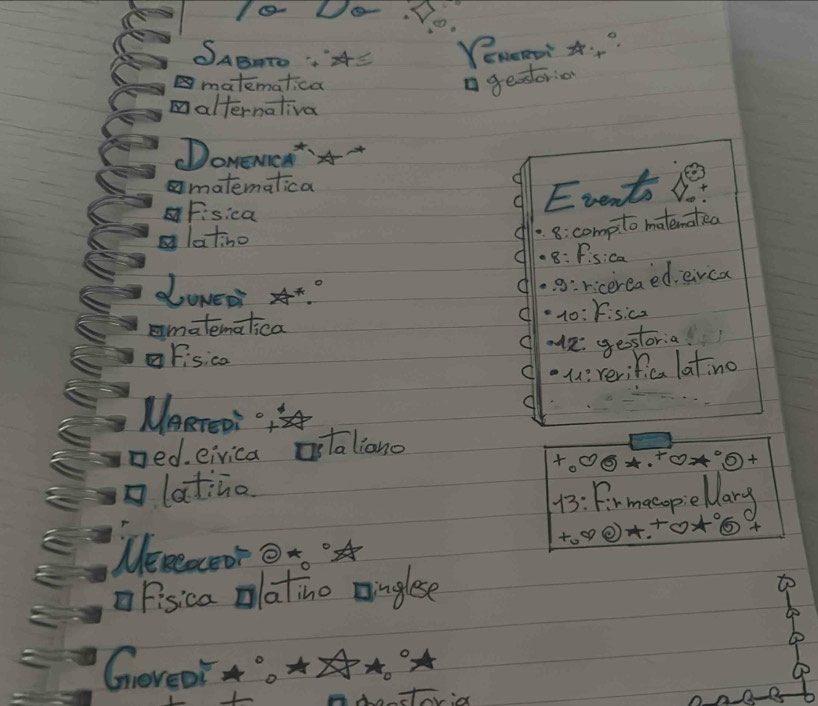 To Do
SABATO
matematica
alternativa
DOMENICA
matematica
Fisica
latino
LUNEDÌ
matematica
Fisica
MARTEDÌ
ed.civica italiano
latino
MERCOLEDÌ
Fisica latino inglese
GIOVEDÌ
geostoria
VENERDÌ
geostoria
Events
• 8: compito matematica
• 8: fisica
• 9: ricerca ed.civica
• 10: Fisica
• 12: geostoria
• 11: verifica latino
13: Firmacopie Mary